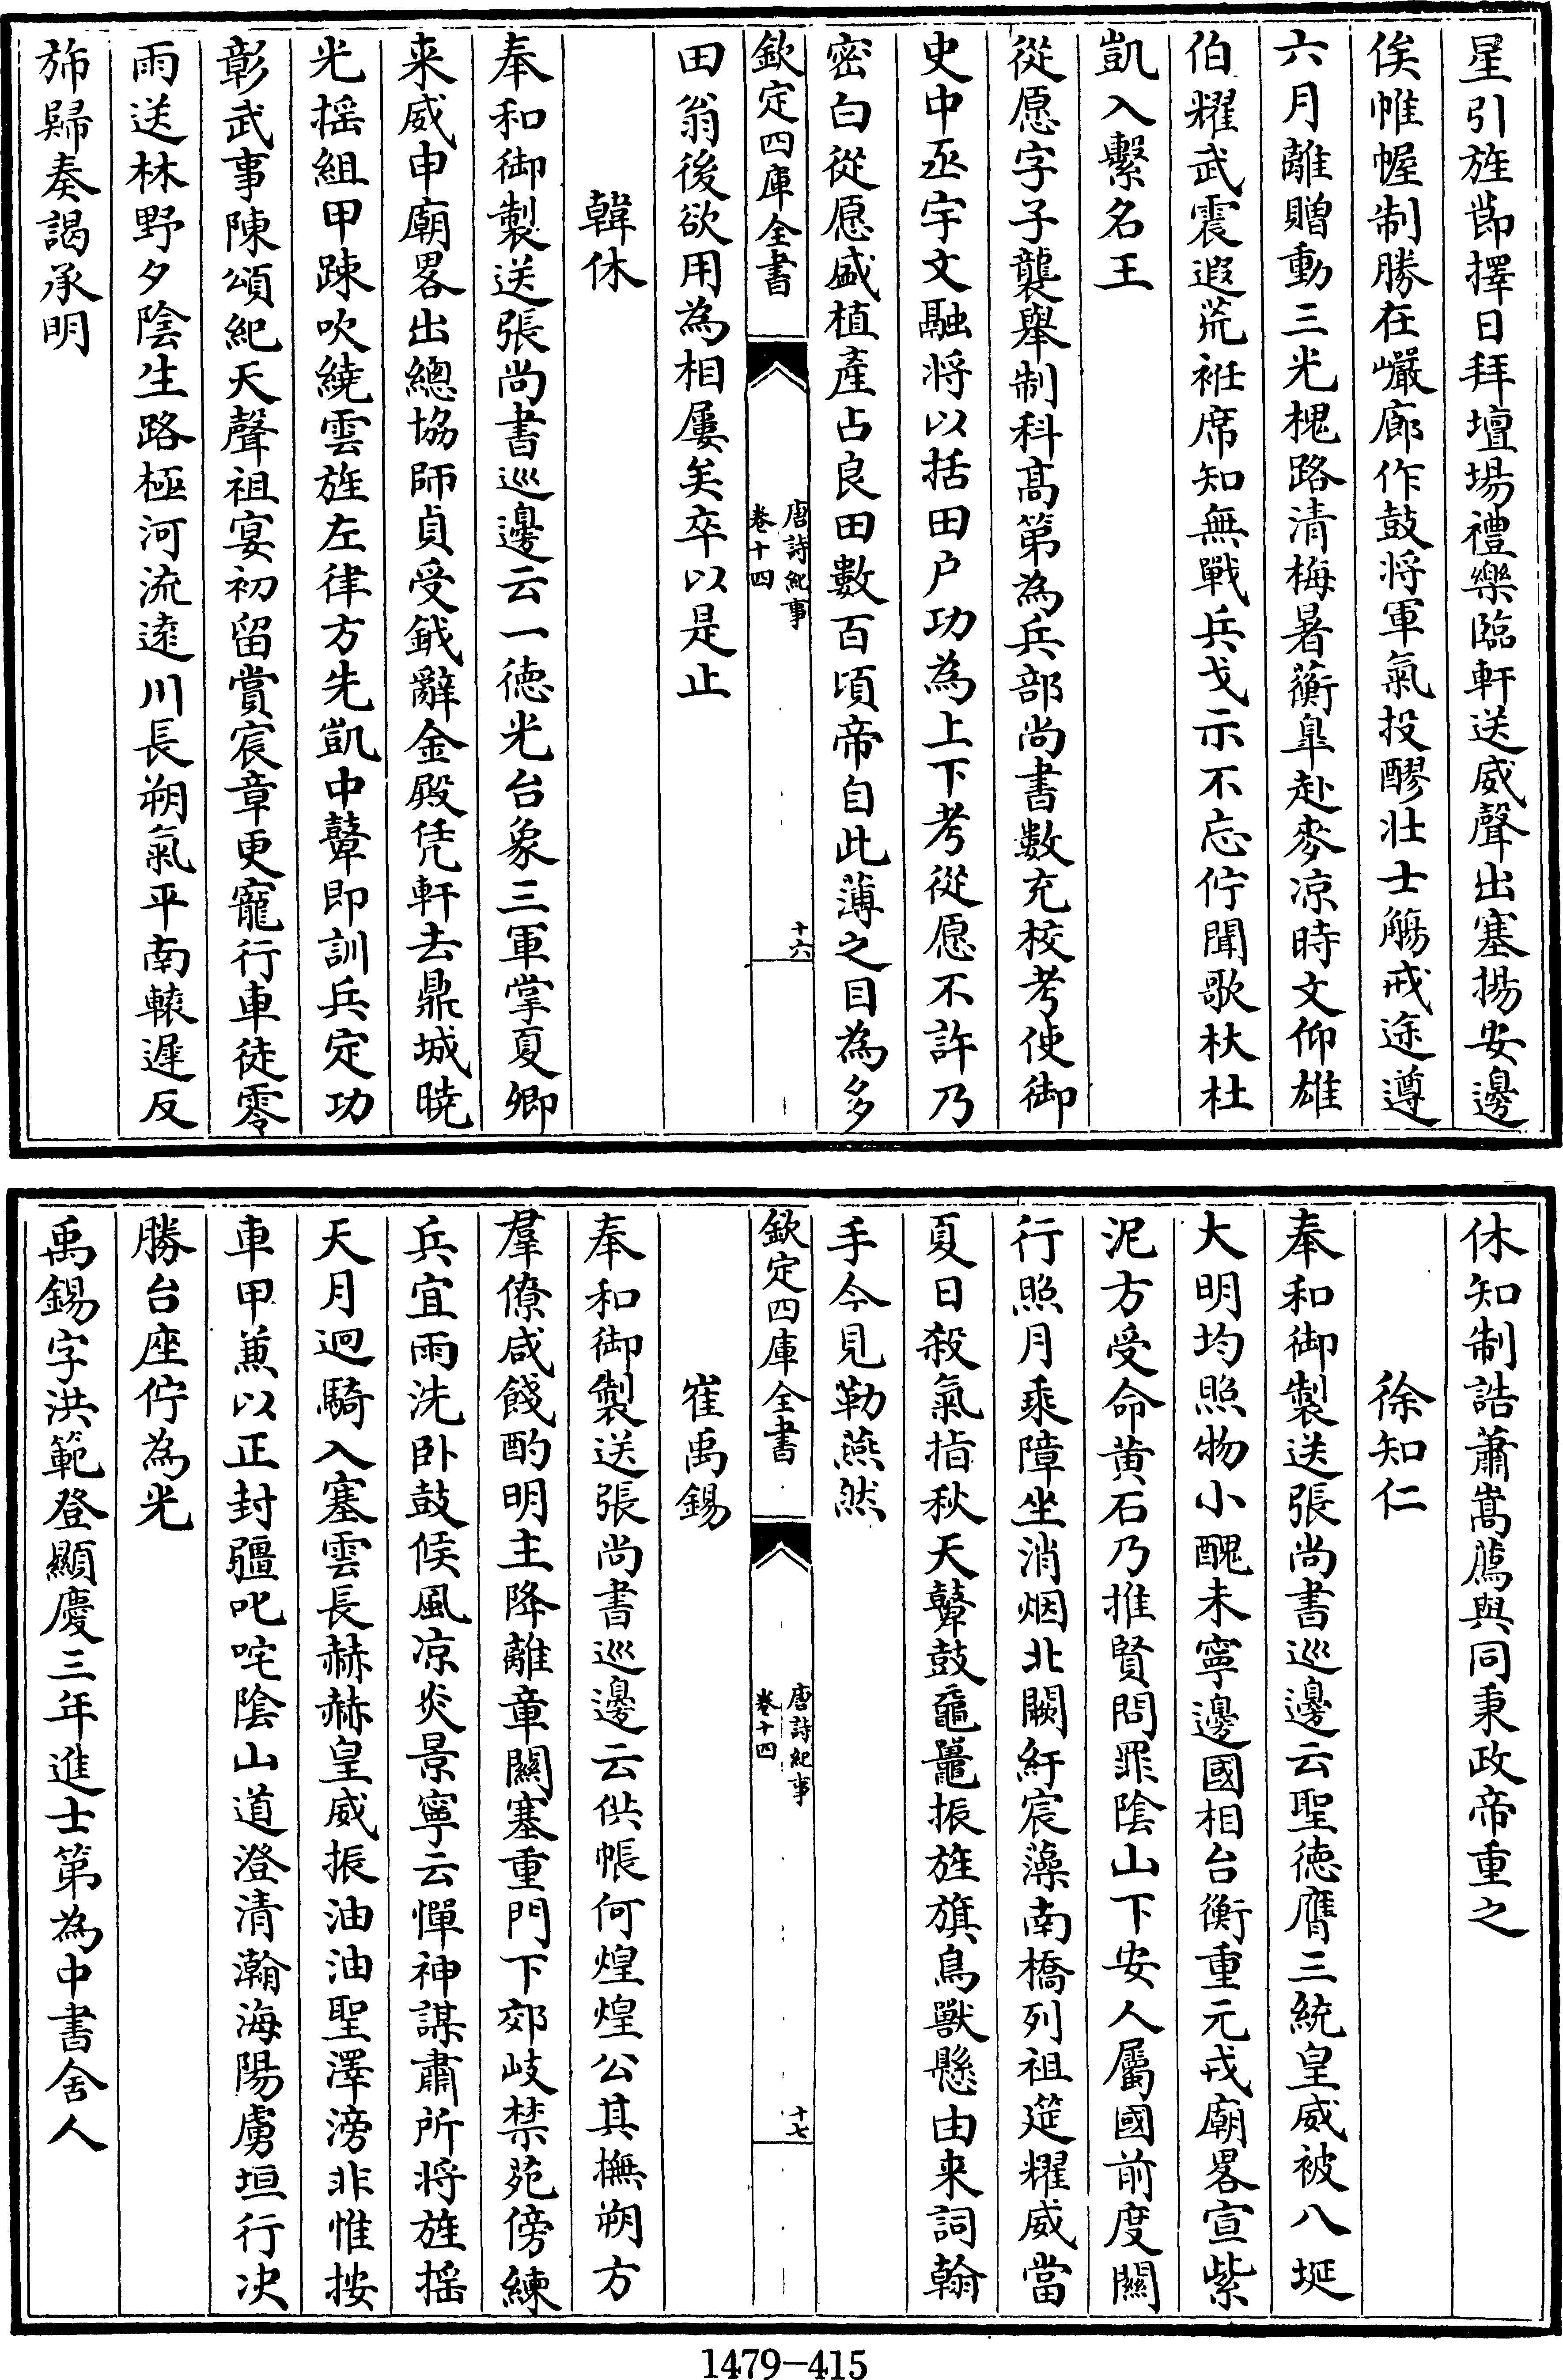 星引旌莭擇日拜壇場禮樂臨軒送威聲出塞揚安邊
俟帷幄制勝在巗廊作鼓将軍氣投醪壮士觴戒途遵
六月離贈動三光槐路清梅暑蘅臯赴麥凉時文仰雄
伯耀武震遐荒袵席知無戰兵戈示不忘佇聞歌杕杜
凱入繫名王
從愿字子龔舉制科髙第為兵部尚書數充校考使御
史中丞宇文融将以括田户功為上下考從愿不許乃
密白從愿盛植產占良田數百頃帝自此薄之目為多
欽定四庫全書
唐詩紀事
卷十四
十六
田翁後欲用為相屢矣卒以是止
韓休
奉和御製送張尚書巡邊云一徳光台象三軍掌夏卿
来威申廟畧出總協師貞受鉞辭金殿凭軒去鼎城曉
光揺組甲踈吹繞雲旌左律方先凱中鼙即訓兵定功
彰武事陳頌紀天聲祖宴初留賞宸章更寵行車徒零
雨送林野夕隂生路極河流逺川長朔氣平南轅遲反
斾歸奏謁承明
休知制誥蕭嵩薦與同秉政帝重之
徐知仁
奉和御製送張尚書巡邊云聖徳膺三統皇威被八埏
大明均照物小醜未寧邊國相台衡重元戎廟畧宣紫
泥方受命黄石乃推賢問罪隂山下安人屬國前度關
行照月乘障坐消烟北闕紆宸藻南橋列祖筵耀威當
夏日殺氣指秋天鼙鼓黿鼉振旌旗鳥獸懸由来詞翰
手今見勒燕然
欽定四庫全書
唐詩紀事
卷十四
十七
崔禹錫
奉和御製送張尚書巡邊云供帳何煌煌公其撫朔方
羣僚咸餞酌明主降離章關塞重門下郊岐禁苑傍練
兵宜雨洗卧鼓候風凉炎景寧云憚神謀肅所将旌揺
天月迥騎入塞雲長赫赫皇威振油油聖澤滂非惟按
車甲兼以正封疆叱咤隂山道澄清瀚海陽虜垣行决
勝台座佇為光
禹錫字洪範登顯慶三年進士第為中書舍人
1479-415